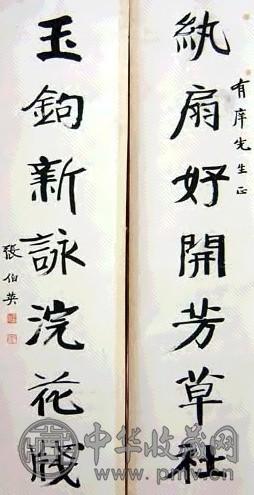 紈扇好開芳草社
有庠先生正
玉鉤新詠浣花牋
張伯英
中华收藏网
www.pmv.cn